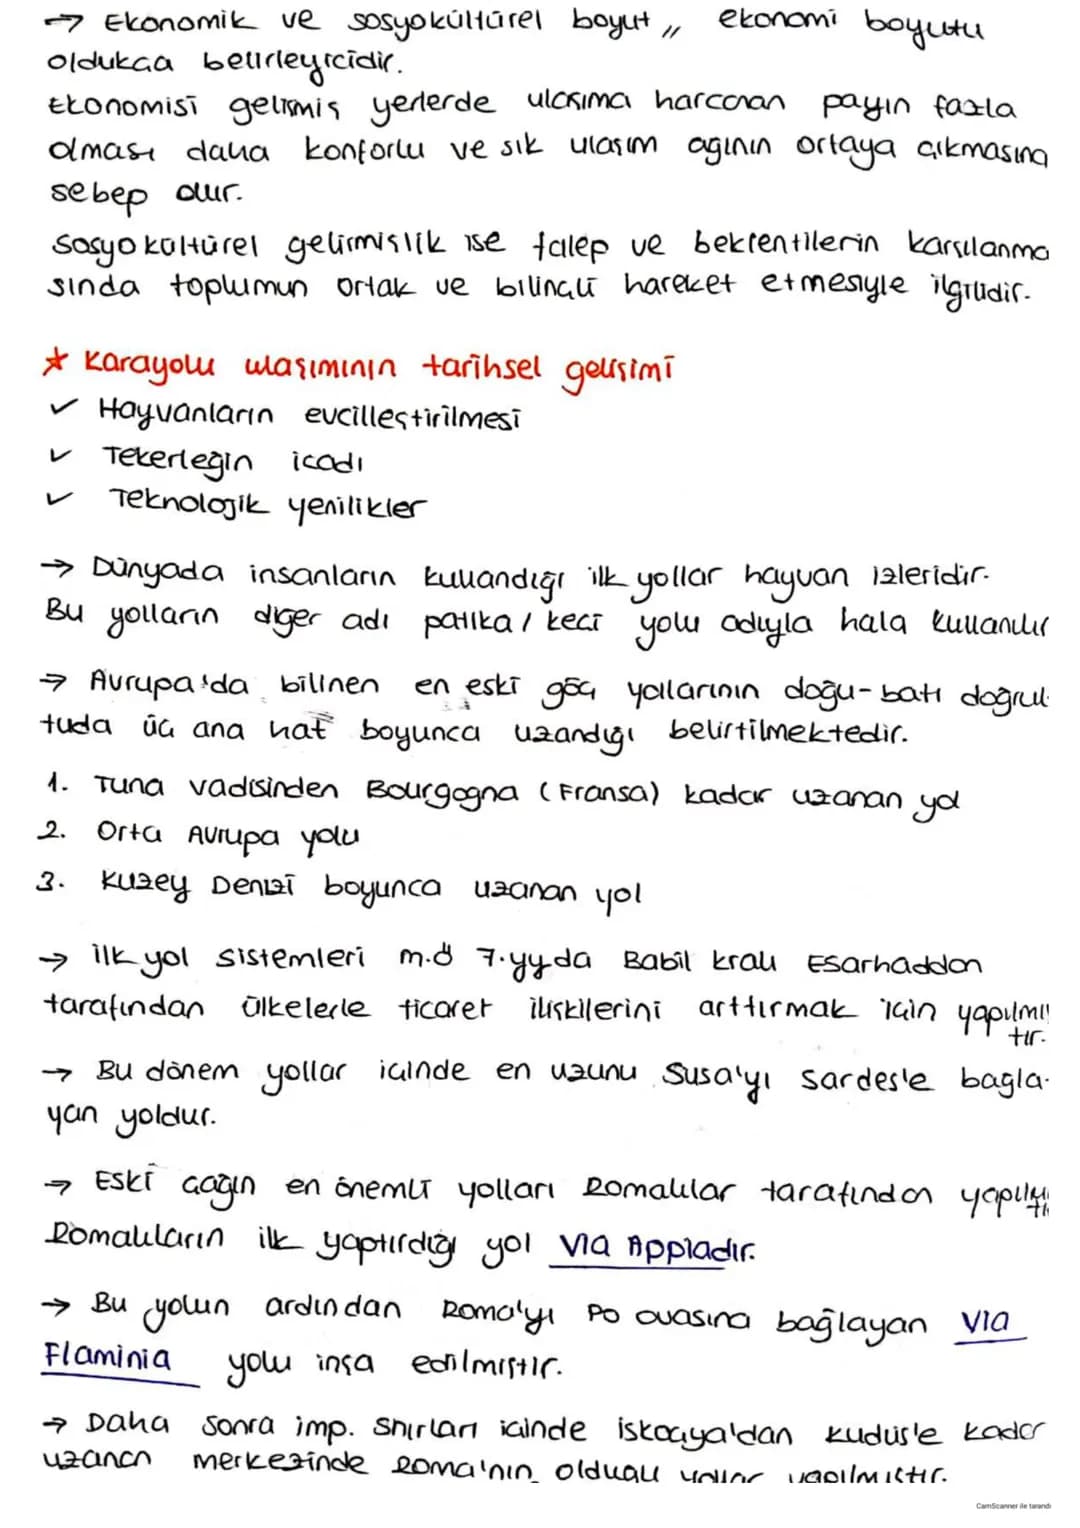 → Ekonomik ve sosyokültürel boyut ,, ekonomi boyutu
oldukça belirleyicidir.
Ekonomisi gelişmiş yerlerde ulaşıma harcanan payın fazla
olması daha konforlu ve sık ulaşım ağının ortaya çıkmasına
sebep olur.
Sosyokültürel gelişmişlik ise talep ve beklentilerin karşılanma
sında toplumun ortak ve bilinçli hareket etmesiyle ilgilidir.
★ Karayolu ulaşımının tarihsel gelişimi
✓ Hayvanların evcilleştirilmesi
✓ Tekerleğin icadı
✓ Teknolojik yenilikler
→ Dünyada insanların kullandığı ilk yollar hayvan izleridir.
Bu yolların diğer adı patika / keçi yolu adıyla hala kullanılır
→ Avrupa'da bilinen en eski göç yollarının doğu-batı doğrul
tuda üç ana hat boyunca uzandığı belirtilmektedir.
1. Tuna vadisinden Bourgogna (Fransa) kadar uzanan yol
2. Orta Avrupa yolu
3. Kuzey Denizi boyunca uzanan yol
→ İlk yol sistemleri m.ö 7.yy da Babil kralı Esarhaddon
tarafından ülkelerle ticaret ilişkilerini arttırmak için yapılmış
tır.
→ Bu dönem yollar içinde en uzunu Susa'yı Sardes'e bağla-
yan yoldur.
→ Eski çağın en önemli yolları Romalılar tarafından
Romalıların ilk yaptırdığı yol Via Appiadır.
→ Bu yolun ardından Roma'yı Po ovasına bağlayan Via
Flaminia yolu inşa edilmiştir.
→ Daha sonra imp. Sınırları içinde İskoçya'dan Kudüs'e kadar
uzanan merkezinde Roma'nın olduğu yollar yapılmıştır.
CamScanner ile tarandı